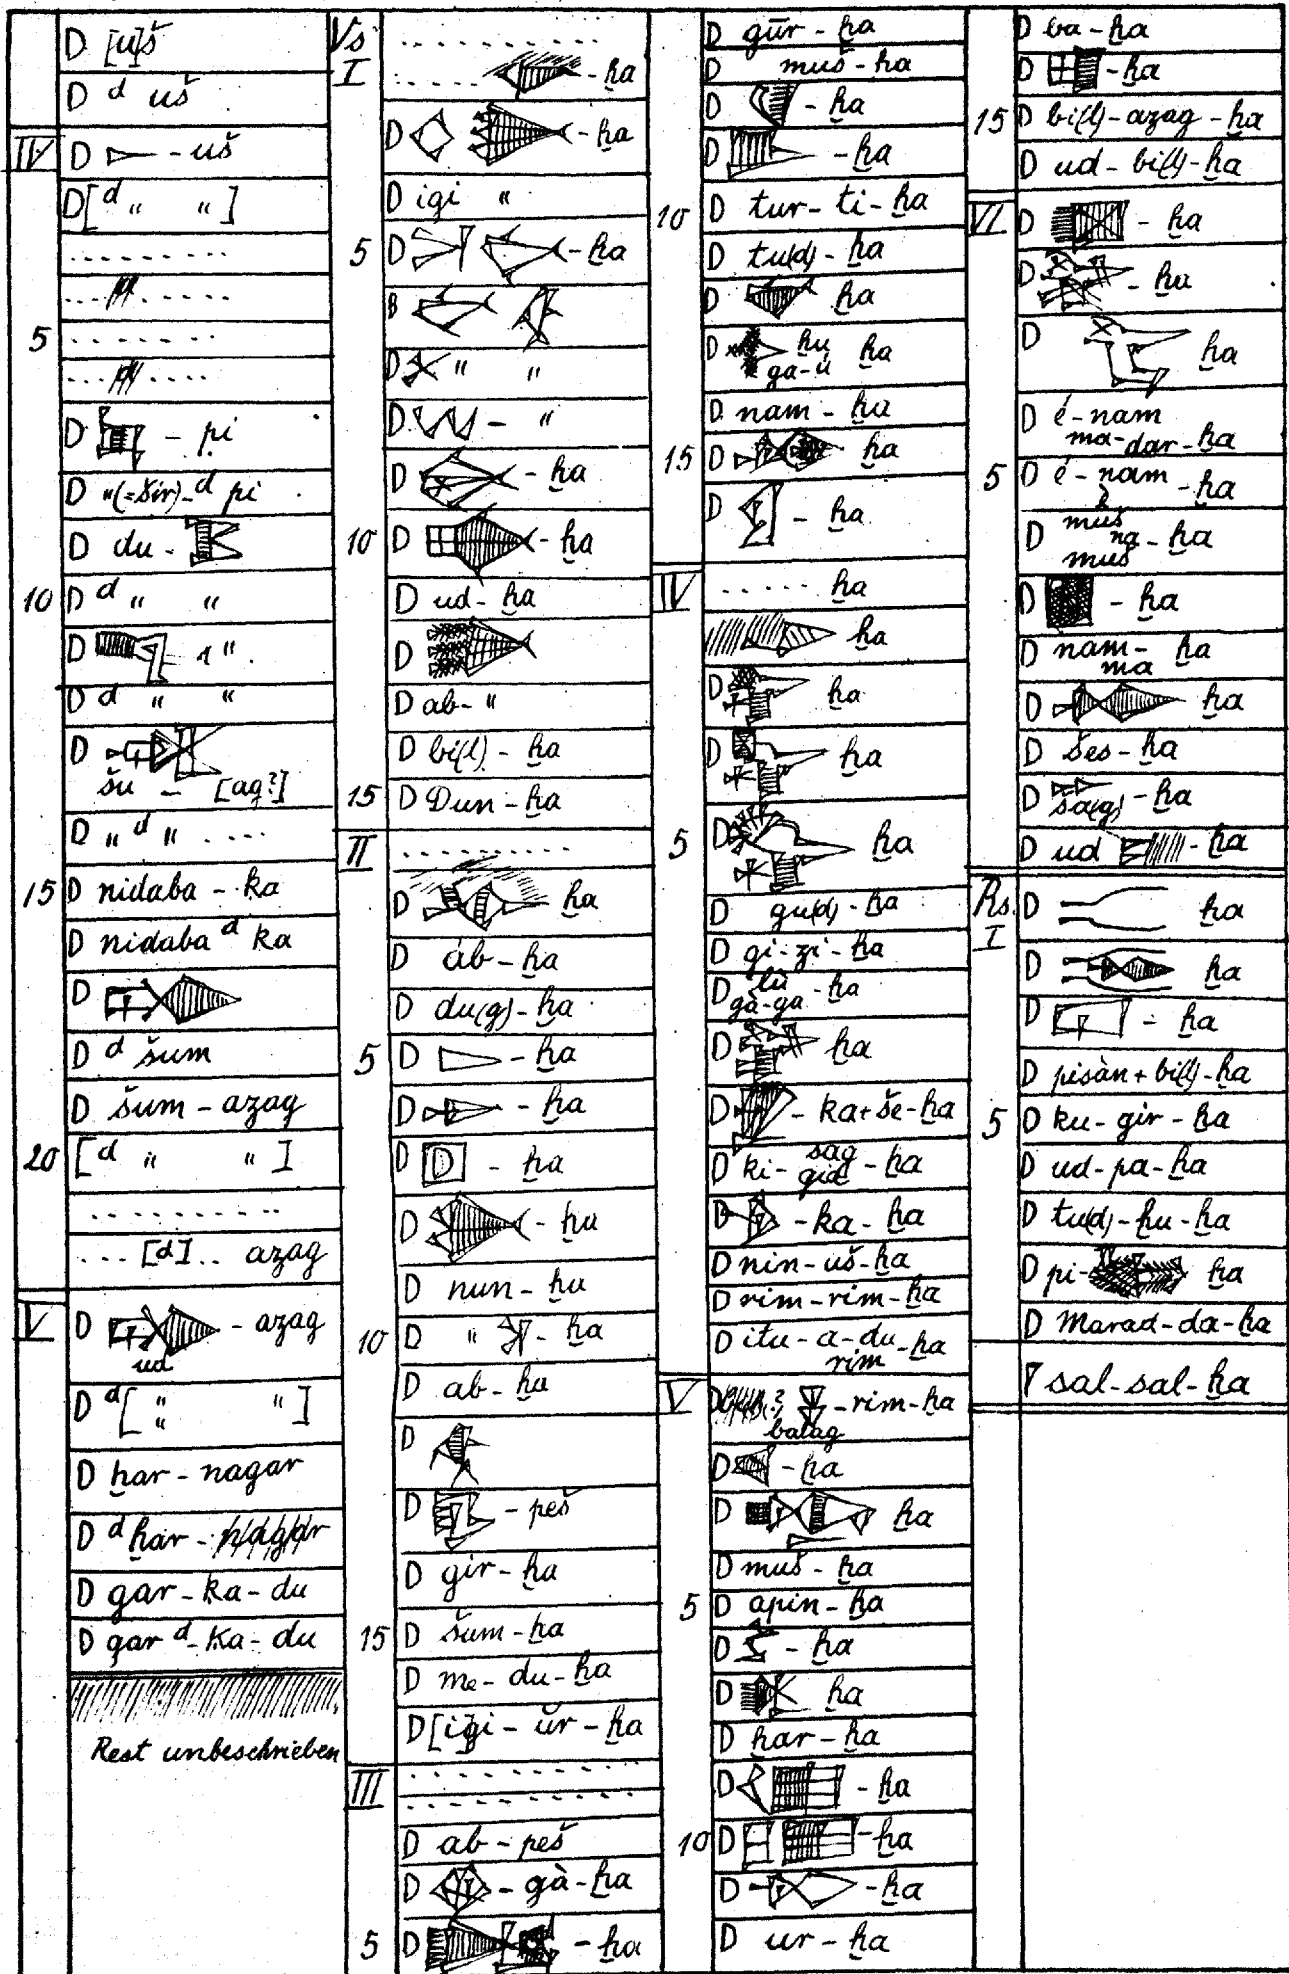 D [u]š
D d uš
IV
D - uš
D [d " " ]
5
D - pi
D "(=šir)-d pi
D du-
10 D d " "
D 1 "
D d " "
D šu - [ag?]
D " d " ....
15 D nidaba - ka
D nidaba d ka
D
D d šum
D šum - azag
20 [d " " ]
... [d] .. azag
V
D ud - azag
D d [ " " ]
D ḫar - nagar
D d ḫar - nagar
D gar - ka - du
D gar d - ka - du
Rest unbeschrieben
Vs
I
- ḫa
D - ḫa
D igi "
5 D - ḫa
D " "
D - "
D - ḫa
10 D - ḫa
D ud - ḫa
D
D ab - "
D bi(l) - ḫa
15 D Dun - ḫa
II
D ḫa
D áb - ḫa
D du(g) - ḫa
5 D - ḫa
D - ḫa
D - ḫa
D - ḫu
D nun - ḫu
10 D " - ḫa
D ab - ḫu
D
D - peš
D gir - ḫa
15 D šum - ḫa
D me - du - ḫa
D [i]gi - ùr - ḫa
III
D ab - peš
D - gà - ḫa
5 D - ḫa
D gūr - ḫa
D muš - ḫa
D - ḫa
D - ḫa
10 D tur - ti - ḫa
D tu(d) - ḫa
D ḫa
D ḫu ga-ú ḫa
D nam - ḫa
15 D ḫa
D - ḫa
IV
..... ḫa
ḫa
D ḫa
D ḫa
5 D ḫa
D gu(d) - ḫa
D gi - zi - ḫa
D lù gà-ga - ḫa
D ḫa
D - ka + še - ḫa
D ki - sag gid - ḫa
D - ka - ḫa
D nin - uš - ḫa
D rim - rim - ḫa
D itu - a - du rim - ḫa
V
D ? balag - rim - ḫa
D - ḫa
D ḫa
D muš - ḫa
5 D apin - ḫa
D - ḫa
D ḫa
D ḫar - ḫa
D - ḫa
10 D - ḫa
D - ḫa
D ur - ḫa
D ba - ḫa
D - ḫa
15 D bi(l) - azag - ḫa
D ud - bi(l) - ḫa
VI
D - ḫa
D - ḫu
D ḫa
D é - nam ma - dar - ḫa
5 D é - nam - ḫa
D muš na muš - ḫa
D - ḫa
D nam - ma ḫa
D ḫa
D šes - ḫa
D sa(g) - ḫa
D ud - ḫa
Rs.
I
D ḫa
D ḫa
D - ḫa
D pisàn + bi(l) - ḫa
5 D ku - gir - ḫa
D ud - pa - ḫa
D tu(d) - ḫu - ḫa
D pi - ḫa
D Marad - da - ḫa
sal - sal - ḫa